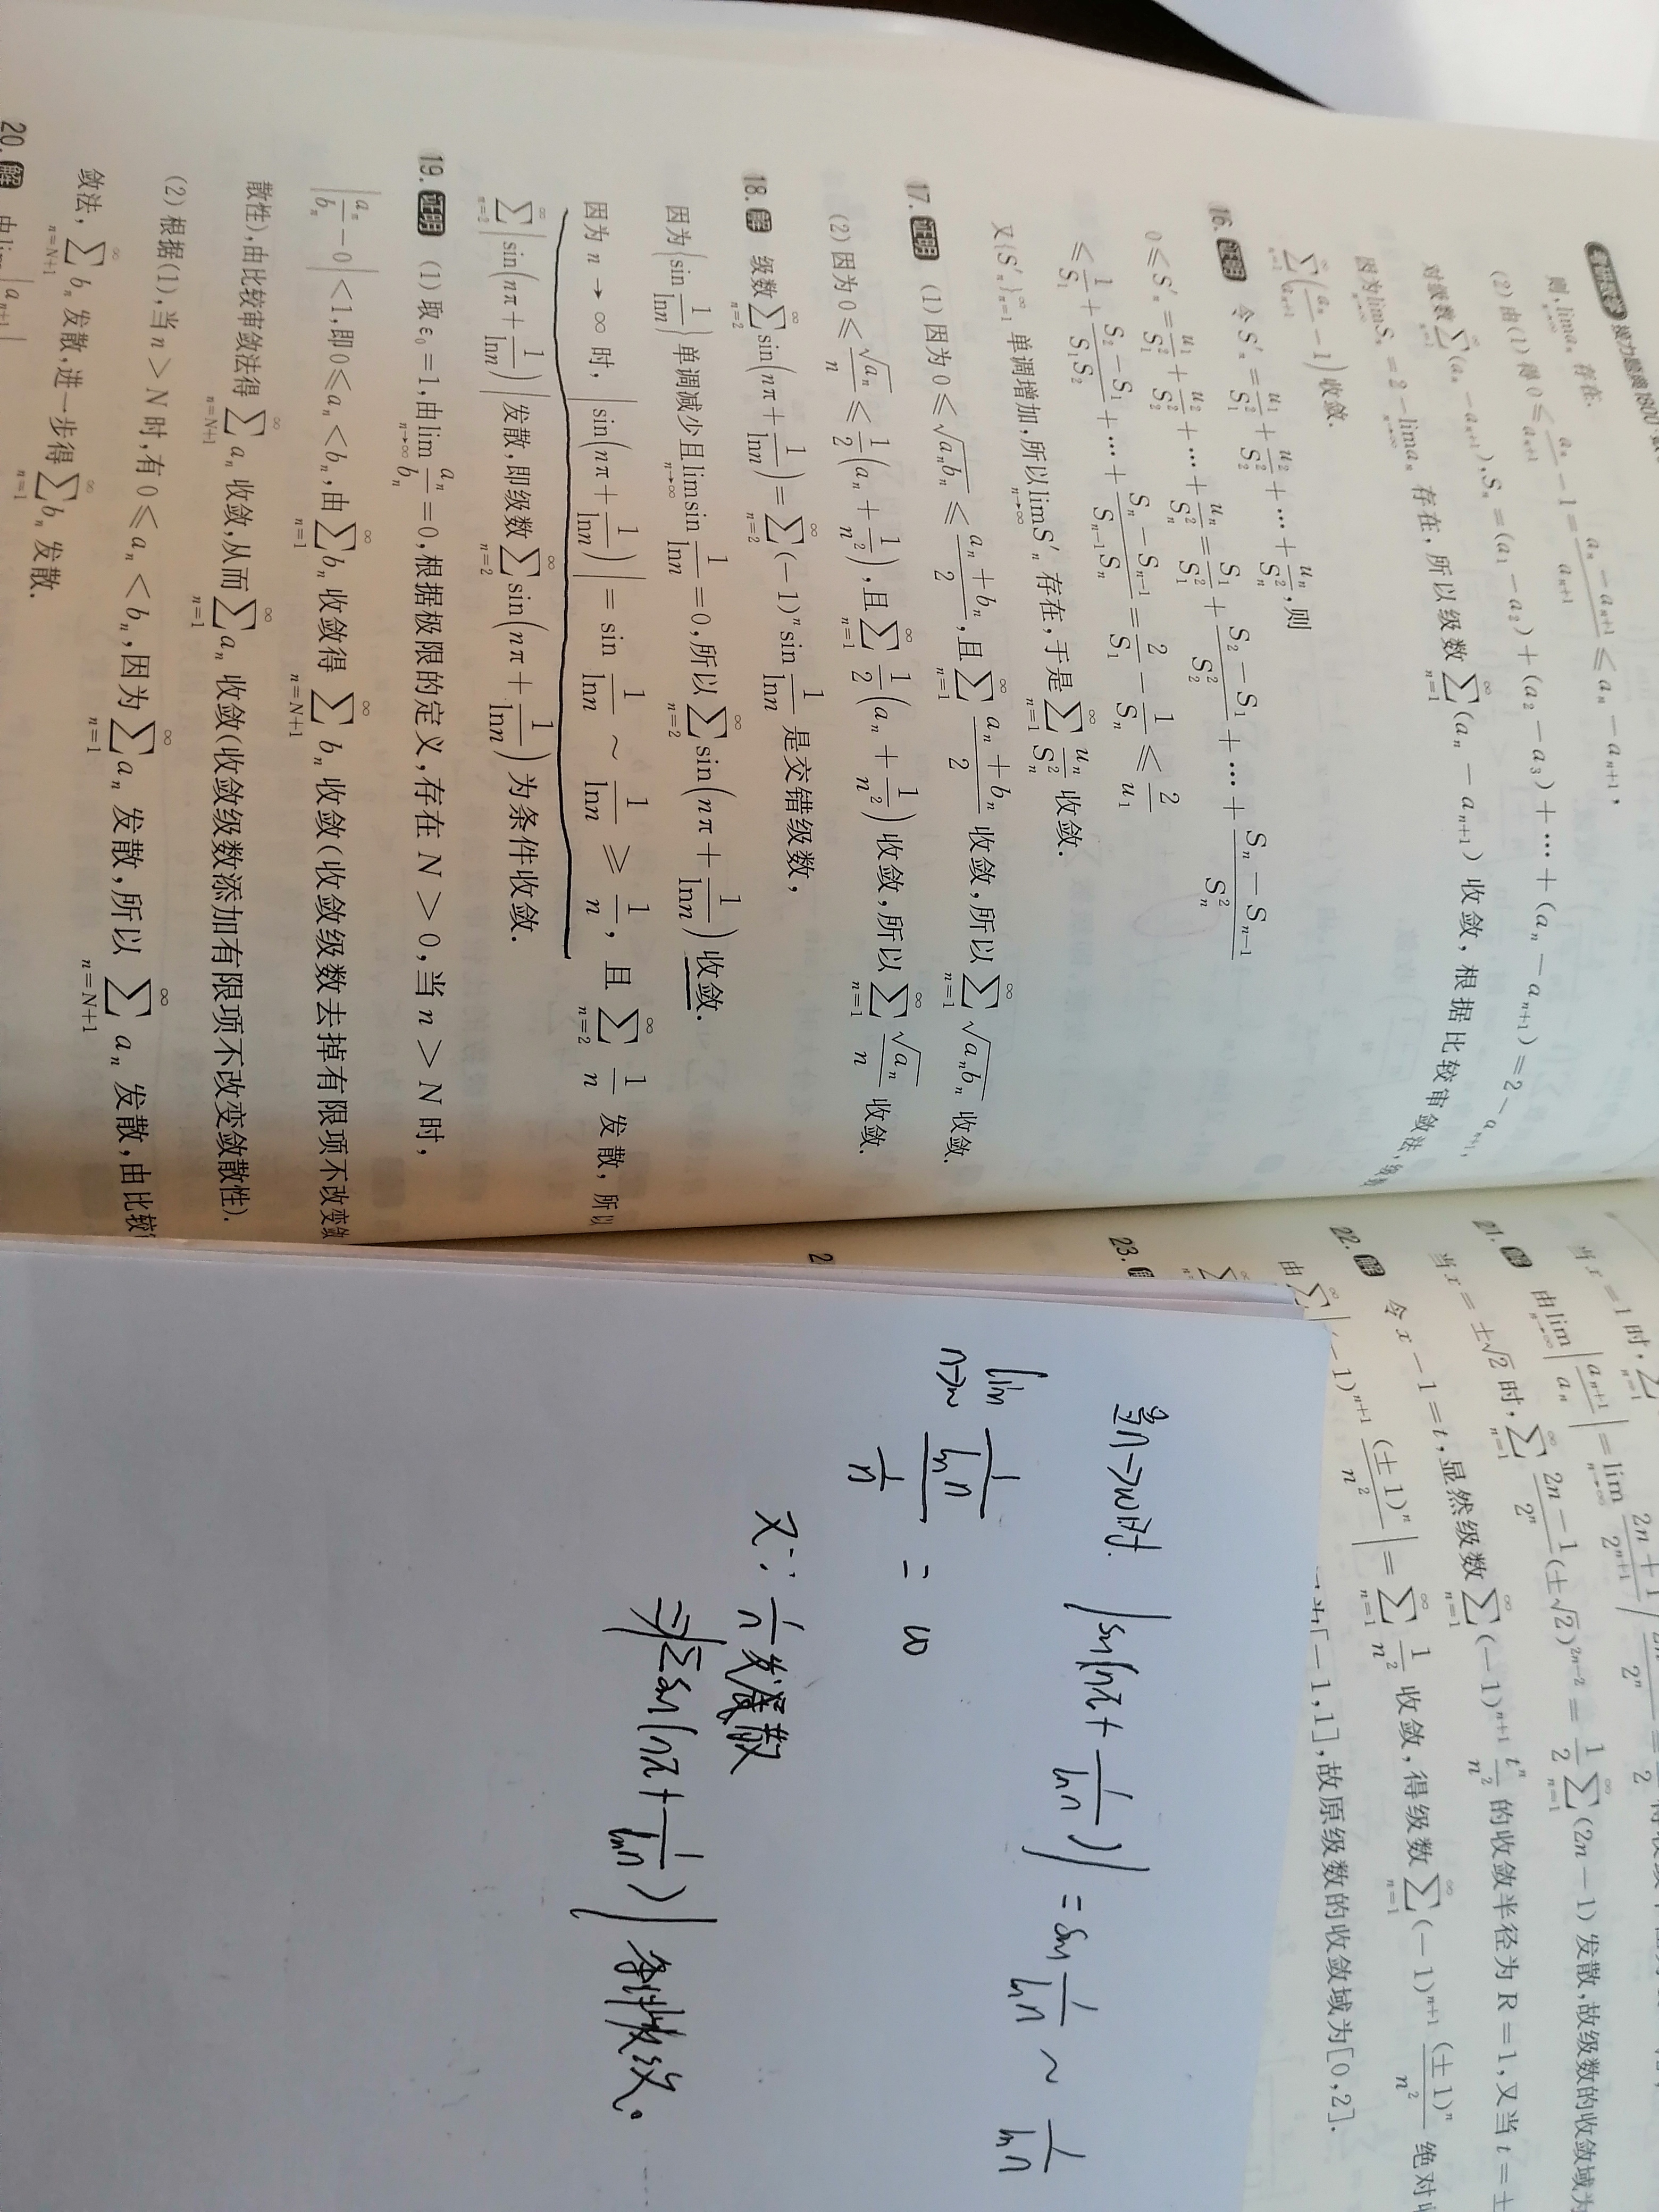 考研数学 接力题典1800
则 $\lim_{n\to\infty} a_n$ 存在.
(2) 由(1)得 $0 \leqslant \frac{a_n}{a_{n+1}} - 1 = \frac{a_n - a_{n+1}}{a_{n+1}} \leqslant a_n - a_{n+1}$,
对级数 $\sum_{n=1}^{\infty}(a_n - a_{n+1})$, $S_n = (a_1 - a_2) + (a_2 - a_3) + \cdots + (a_n - a_{n+1}) = 2 - a_{n+1}$,
因为 $\lim_{n\to\infty} S_n = 2 - \lim_{n\to\infty} a_n$ 存在, 所以级数 $\sum_{n=1}^{\infty}(a_n - a_{n+1})$ 收敛, 根据比较审敛法, 级数
$\sum_{n=1}^{\infty}\left(\frac{a_n}{a_{n+1}} - 1\right)$ 收敛.
16. 证明 令 $S'_n = \frac{u_1}{S_1^2} + \frac{u_2}{S_2^2} + \cdots + \frac{u_n}{S_n^2}$, 则
$0 \leqslant S'_n = \frac{u_1}{S_1^2} + \frac{u_2}{S_2^2} + \cdots + \frac{u_n}{S_n^2} = \frac{S_1}{S_1^2} + \frac{S_2 - S_1}{S_2^2} + \cdots + \frac{S_n - S_{n-1}}{S_n^2}$
$\leqslant \frac{1}{S_1} + \frac{S_2 - S_1}{S_1 S_2} + \cdots + \frac{S_n - S_{n-1}}{S_{n-1} S_n} = \frac{2}{S_1} - \frac{1}{S_n} \leqslant \frac{2}{u_1}$
又 $\{S'_n\}_{n=1}^{\infty}$ 单调增加, 所以 $\lim_{n\to\infty} S'_n$ 存在, 于是 $\sum_{n=1}^{\infty} \frac{u_n}{S_n^2}$ 收敛.
17. 证明 (1) 因为 $0 \leqslant \sqrt{a_n b_n} \leqslant \frac{a_n + b_n}{2}$, 且 $\sum_{n=1}^{\infty} \frac{a_n + b_n}{2}$ 收敛, 所以 $\sum_{n=1}^{\infty} \sqrt{a_n b_n}$ 收敛.
(2) 因为 $0 \leqslant \frac{\sqrt{a_n}}{n} \leqslant \frac{1}{2}\left(a_n + \frac{1}{n^2}\right)$, 且 $\sum_{n=1}^{\infty} \frac{1}{2}\left(a_n + \frac{1}{n^2}\right)$ 收敛, 所以 $\sum_{n=1}^{\infty} \frac{\sqrt{a_n}}{n}$ 收敛.
18. 解 级数 $\sum_{n=2}^{\infty} \sin\left(n\pi + \frac{1}{\ln n}\right) = \sum_{n=2}^{\infty} (-1)^n \sin\frac{1}{\ln n}$ 是交错级数,
因为 $\left\{\sin\frac{1}{\ln n}\right\}$ 单调减少且 $\lim_{n\to\infty} \sin\frac{1}{\ln n} = 0$, 所以 $\sum_{n=2}^{\infty} \sin\left(n\pi + \frac{1}{\ln n}\right)$ 收敛.
因为 $n \to \infty$ 时, $\left|\sin\left(n\pi + \frac{1}{\ln n}\right)\right| = \sin\frac{1}{\ln n} \sim \frac{1}{\ln n} \geqslant \frac{1}{n}$, 且 $\sum_{n=2}^{\infty} \frac{1}{n}$ 发散, 所以
$\sum_{n=2}^{\infty} \left|\sin\left(n\pi + \frac{1}{\ln n}\right)\right|$ 发散, 即级数 $\sum_{n=2}^{\infty} \sin\left(n\pi + \frac{1}{\ln n}\right)$ 为条件收敛.
19. 证明 (1) 取 $\varepsilon_0 = 1$, 由 $\lim_{n\to\infty} \frac{a_n}{b_n} = 0$, 根据极限的定义, 存在 $N > 0$, 当 $n > N$ 时,
$\left|\frac{a_n}{b_n} - 0\right| < 1$, 即 $0 \leqslant a_n < b_n$, 由 $\sum_{n=1}^{\infty} b_n$ 收敛得 $\sum_{n=N+1}^{\infty} b_n$ 收敛(收敛级数去掉有限项不改变敛
散性), 由比较审敛法得 $\sum_{n=N+1}^{\infty} a_n$ 收敛, 从而 $\sum_{n=1}^{\infty} a_n$ 收敛(收敛级数添加有限项不改变敛散性).
(2) 根据(1), 当 $n > N$ 时, 有 $0 \leqslant a_n < b_n$, 因为 $\sum_{n=1}^{\infty} a_n$ 发散, 所以 $\sum_{n=N+1}^{\infty} a_n$ 发散, 由比较
敛法, $\sum_{n=N+1}^{\infty} b_n$ 发散, 进一步得 $\sum_{n=1}^{\infty} b_n$ 发散.
20. 解 由 $\lim \left|\frac{a_{n+1}}{}\right|$
当 $x = 1$ 时, $\sum_{n=1}$
21. 解 由 $\lim_{n\to\infty} \left|\frac{a_{n+1}}{a_n}\right| = \lim_{n\to\infty} \frac{2n+1}{2^{n+1}} /$
当 $x = \pm\sqrt{2}$ 时, $\sum_{n=1}^{\infty} \frac{2n-1}{2^n} (\pm\sqrt{2})^{2n-2} = \frac{1}{2} \sum_{n=1}^{\infty} (2n-1)$ 发散, 故级数的收敛域为
22. 解 令 $x - 1 = t$, 显然级数 $\sum_{n=1}^{\infty} (-1)^{n+1} \frac{t^n}{n^2}$ 的收敛半径为 $R = 1$, 又当 $t = \pm$
由 $\sum_{n=1}^{\infty} \left|(-1)^{n+1} \frac{(\pm 1)^n}{n^2}\right| = \sum_{n=1}^{\infty} \frac{1}{n^2}$ 收敛, 得级数 $\sum_{n=1}^{\infty} (-1)^{n+1} \frac{(\pm 1)^n}{n^2}$ 绝对收
为 $[-1, 1]$, 故原级数的收敛域为 $[0, 2]$.
23. 解
2
当 $n \to \infty$ 时. $\left|\sin\left(n\pi + \frac{1}{\ln n}\right)\right| = \sin\frac{1}{\ln n} \sim \frac{1}{\ln n}$
$\lim_{n\to\infty} \frac{\frac{1}{\ln n}}{\frac{1}{n}} = \infty$
又∵ $\frac{1}{n}$ 发散
⇒ $\left|\sum \sin\left(n\pi + \frac{1}{\ln n}\right)\right|$ 条件收敛.